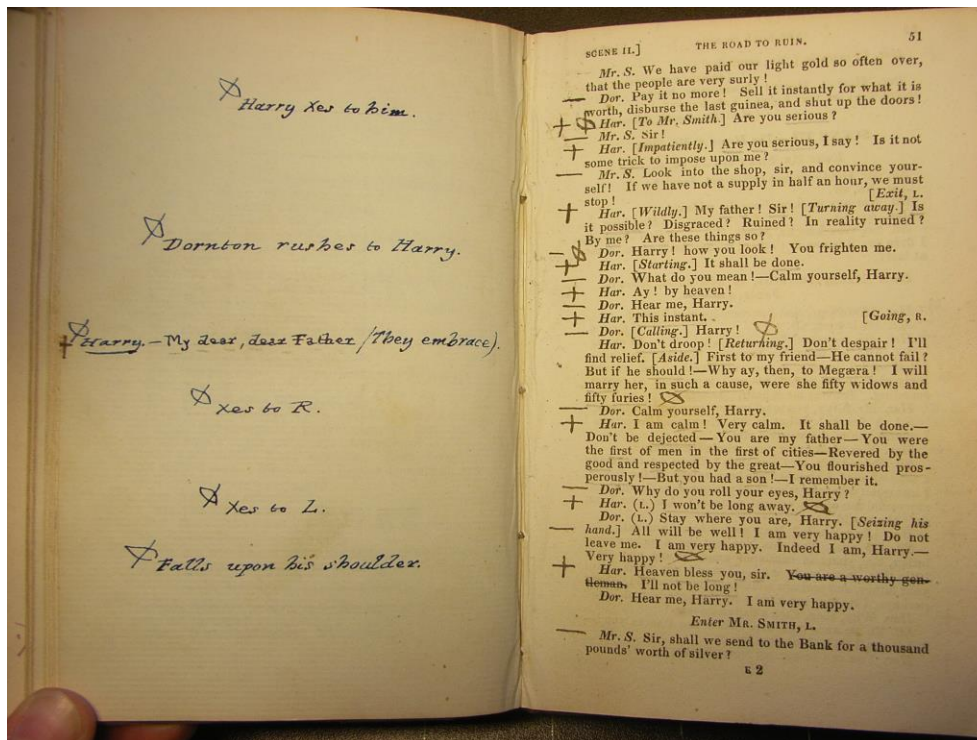 Harry Xes to him.
Dornton rushes to Harry.
Harry. - My dear, dear Father (They embrace).
Xes to R.
Xes to L.
Falls upon his shoulder.
SCENE II.] THE ROAD TO RUIN. 51
Mr. S. We have paid our light gold so often over,
that the people are very surly !
Dor. Pay it no more ! Sell it instantly for what it is
worth, disburse the last guinea, and shut up the doors !
Har. [To Mr. Smith.] Are you serious ?
Mr. S. Sir !
Har. [Impatiently.] Are you serious, I say ! Is it not
some trick to impose upon me ?
Mr. S. Look into the shop, sir, and convince your-
self ! If we have not a supply in half an hour, we must
stop ! [Exit, L.
Har. [Wildly.] My father ! Sir ! [Turning away.] Is
it possible ? Disgraced ? Ruined ? In reality ruined ?
By me ? Are these things so ?
Dor. Harry ! how you look ! You frighten me.
Har. [Starting.] It shall be done.
Dor. What do you mean !—Calm yourself, Harry.
Har. Ay ! by heaven !
Dor. Hear me, Harry.
Har. This instant. [Going, R.
Dor. [Calling.] Harry !
Har. Don't droop ! [Returning.] Don't despair ! I'll
find relief. [Aside.] First to my friend—He cannot fail ?
But if he should !—Why ay, then, to Megæra ! I will
marry her, in such a cause, were she fifty widows and
fifty furies !
Dor. Calm yourself, Harry.
Har. I am calm ! Very calm. It shall be done.—
Don't be dejected—You are my father—You were
the first of men in the first of cities—Revered by the
good and respected by the great—You flourished pros-
perously !—But you had a son !—I remember it.
Dor. Why do you roll your eyes, Harry ?
Har. (L.) I won't be long away.
Dor. (L.) Stay where you are, Harry. [Seizing his
hand.] All will be well ! I am very happy ! Do not
leave me. I am very happy. Indeed I am, Harry.—
Very happy !
Har. Heaven bless you, sir. You are a worthy gen-
tleman. I'll not be long !
Dor. Hear me, Harry. I am very happy.
Enter MR. SMITH, L.
Mr. S. Sir, shall we send to the Bank for a thousand
pounds' worth of silver ?
E 2